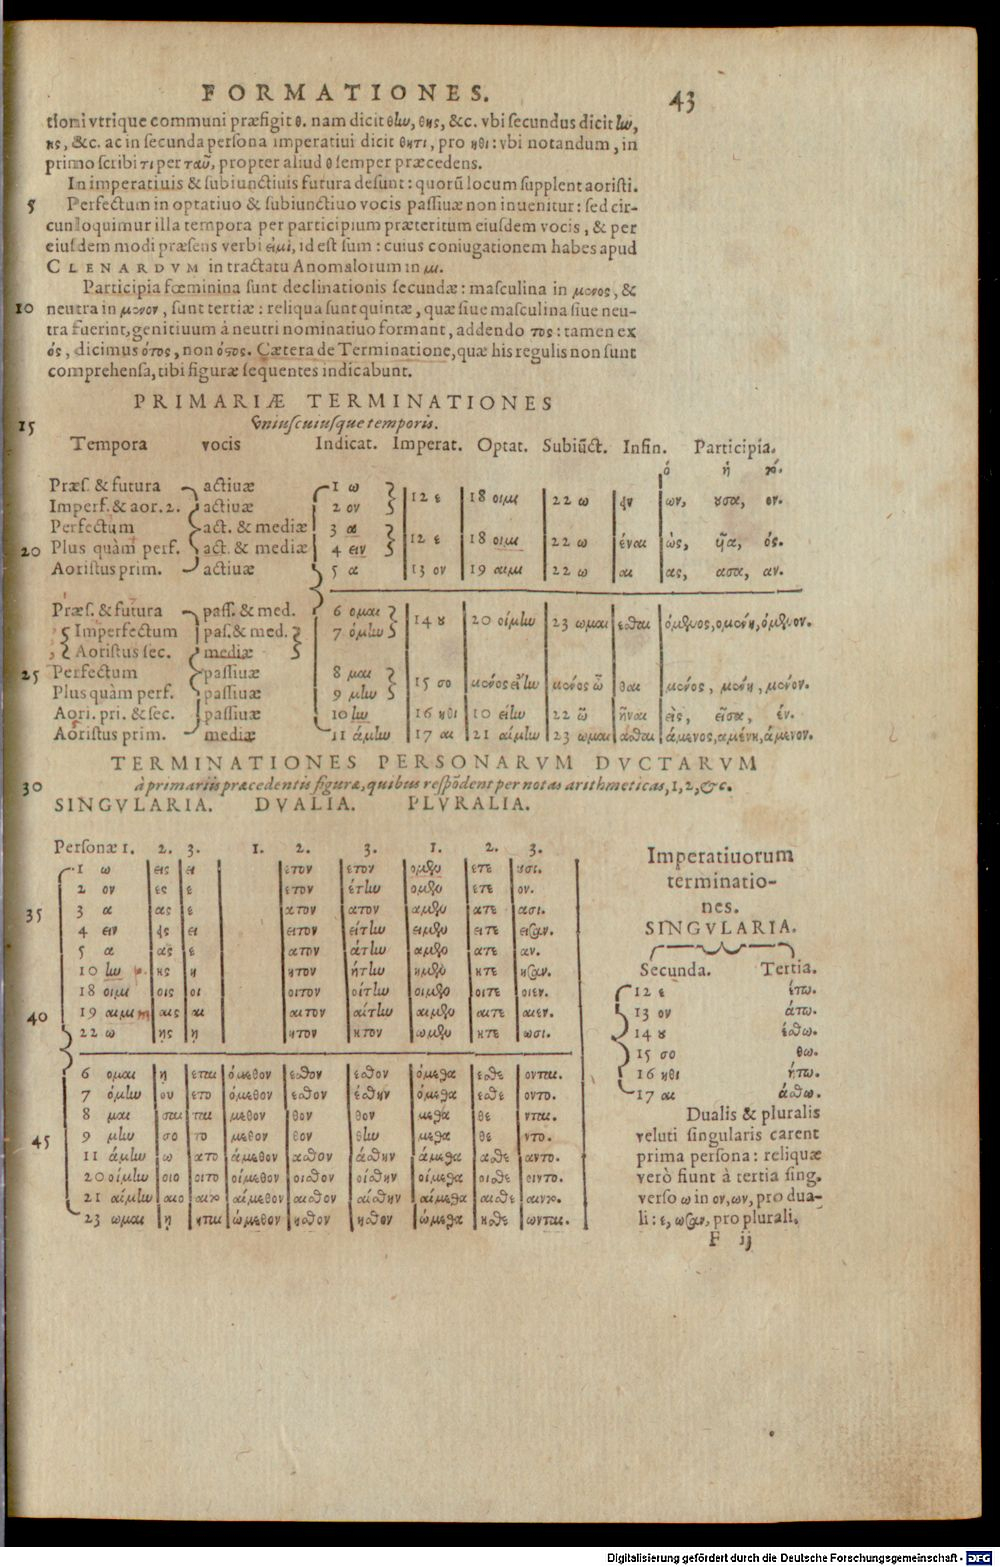 FORMATIONES. 43
tioni vtrique communi præfigit θ. nam dicit θἰω, θης, &c. vbi secundus dicit ἰω,
ης, &c. ac in secunda persona imperatiui dicit θητι, pro ηθι: vbi notandum, in
primo scribi τι per ταῦ, propter aliud θ semper præcedens.
In imperatiuis & subiunctiuis futura desunt: quorū locum supplent aoristi.
5 Perfectum in optatiuo & subiunctiuo vocis passiuæ non inuenitur: sed cir-
cunloquimur illa tempora per participium præteritum eiusdem vocis, & per
eiusdem modi præsens verbi εἰμι, id est sum: cuius coniugationem habes apud
CLENARDVM in tractatu Anomalorum in μι.
Participia fœminina sunt declinationis secundæ: masculina in μενος, &
10 neutra in μενον, sunt tertiæ: reliqua sunt quintæ, quæ siue masculina siue neu-
tra fuerint, genitiuum à neutri nominatiuo formant, addendo τος: tamen ex
ὀς, dicimus ότος, non όστος. Cætera de Terminatione, quæ his regulis non sunt
comprehensa, tibi figuræ sequentes indicabunt.
PRIMARIÆ TERMINATIONES
15 vniuscuiusque temporis.
Tempora vocis Indicat. Imperat. Optat. Subiūct. Infin. Participia.
ὁ ἡ τό.
Præs. & futura actiuæ 1 ω 12 ε 18 οιμι 22 ω ειν ων, ουσα, ον.
Imperf. & aor. 2. actiuæ 2 ον
Perfectum act. & mediæ 3 α 12 ε 18 οιμι 22 ω έναι ὼς, υῖα, ός.
20 Plus quàm perf. act. & mediæ 4 ειν
Aoristus prim. actiuæ 5 α 13 ον 19 αιμι 22 ω αι ας, ασα, αν.
Præs. & futura pass. & med. 6 ομαι 14 ου 20 οίμἰω 23 ωμαι εσθαι όμενος, ομένη, όμενον.
Imperfectum pas. & med. 7 όμἰω
Aoristus sec. mediæ
25 Perfectum passiuæ 8 μαι 15 σο μενος είἰω μενος ὦ θαι μενος, μενη, μενον.
Plus quàm perf. passiuæ 9 μἰω
Aori. pri. & sec. passiuæ 10 ἰω 16 ηθι 10 είἰω 22 ῶ ῆναι εὶς, εῖσα, έν.
Aoristus prim. mediæ 11 άμἰω 17 αι 21 αίμἰω 23 ωμαι άσθαι άμενος, αμένη, άμενον.
TERMINATIONES PERSONARVM DVCTARVM
30 à primariis præcedentis figuræ, quibus respōdent per notas arithmeticas, 1, 2, &c.
SINGVLARIA. DVALIA. PLVRALIA.
Personæ 1. 2. 3. 1. 2. 3. 1. 2. 3.
1 ω εις ει ετον ετον ομεν ετε ουσι.
2 ον ες ε ετον έτἰω ομεν ετε ον.
35 3 α ας ε ατον ατον αμεν ατε ασι.
4 ειν εις ει ειτον είτἰω ειμεν ειτε εισαν.
5 α ας ε ατον άτἰω αμεν ατε αν.
10 ἰω ης η ητον ήτἰω ημεν ητε ησαν.
18 οιμι οις οι οιτον οίτἰω οιμεν οιτε οιεν.
40 19 αιμι αις αι αιτον αίτἰω αιμεν αιτε αιεν.
22 ω ης η ητον ητον ωμεν ητε ωσι.
6 ομαι η εται όμεθον εσθον εσθον όμεθα εσθε ονται.
7 όμἰω ου ετο όμεθον εσθον έσθην όμεθα εσθε οντο.
8 μαι σαι ται μεθον θον θον μεθα θε νται.
45 9 μἰω σο το μεθον θον θἰω μεθα θε ντο.
11 άμἰω ω ατο άμεθον ασθον άσθην άμεθα ασθε αντο.
20 οίμἰω οιο οιτο οίμεθον οισθον οίσθην οίμεθα οισθε οιντο.
21 αίμἰω αιο αιτο αίμεθον αισθον αίσθην αίμεθα αισθε αιντο.
23 ωμαι η ηται ώμεθον ησθον ησθον ώμεθα ησθε ωνται.
Imperatiuorum
terminatio-
nes.
SINGVLARIA.
Secunda. Tertia.
12 ε έτω.
13 ον άτω.
14 ου έσθω.
15 σο θω.
16 ηθι ήτω.
17 αι άσθω.
Dualis & pluralis
veluti singularis carent
prima persona: reliquæ
verò fiunt à tertia sing.
verso ω in ον, ων, pro dua-
li: ε, ωσαν, pro plurali.
F ij
Digitalisierung gefördert durch die Deutsche Forschungsgemeinschaft - DFG